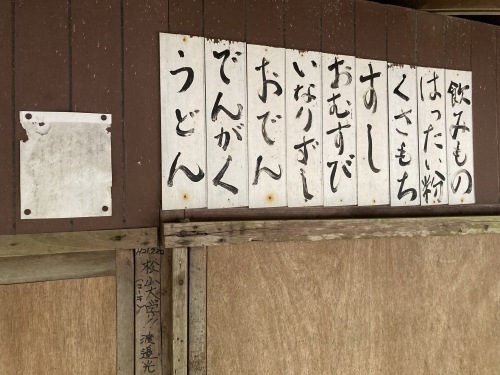 飲みもの
はったい粉
くさもち
すし
おむすび
いなりずし
おでん
でんがく
うどん
松山大学!!
渡邉光